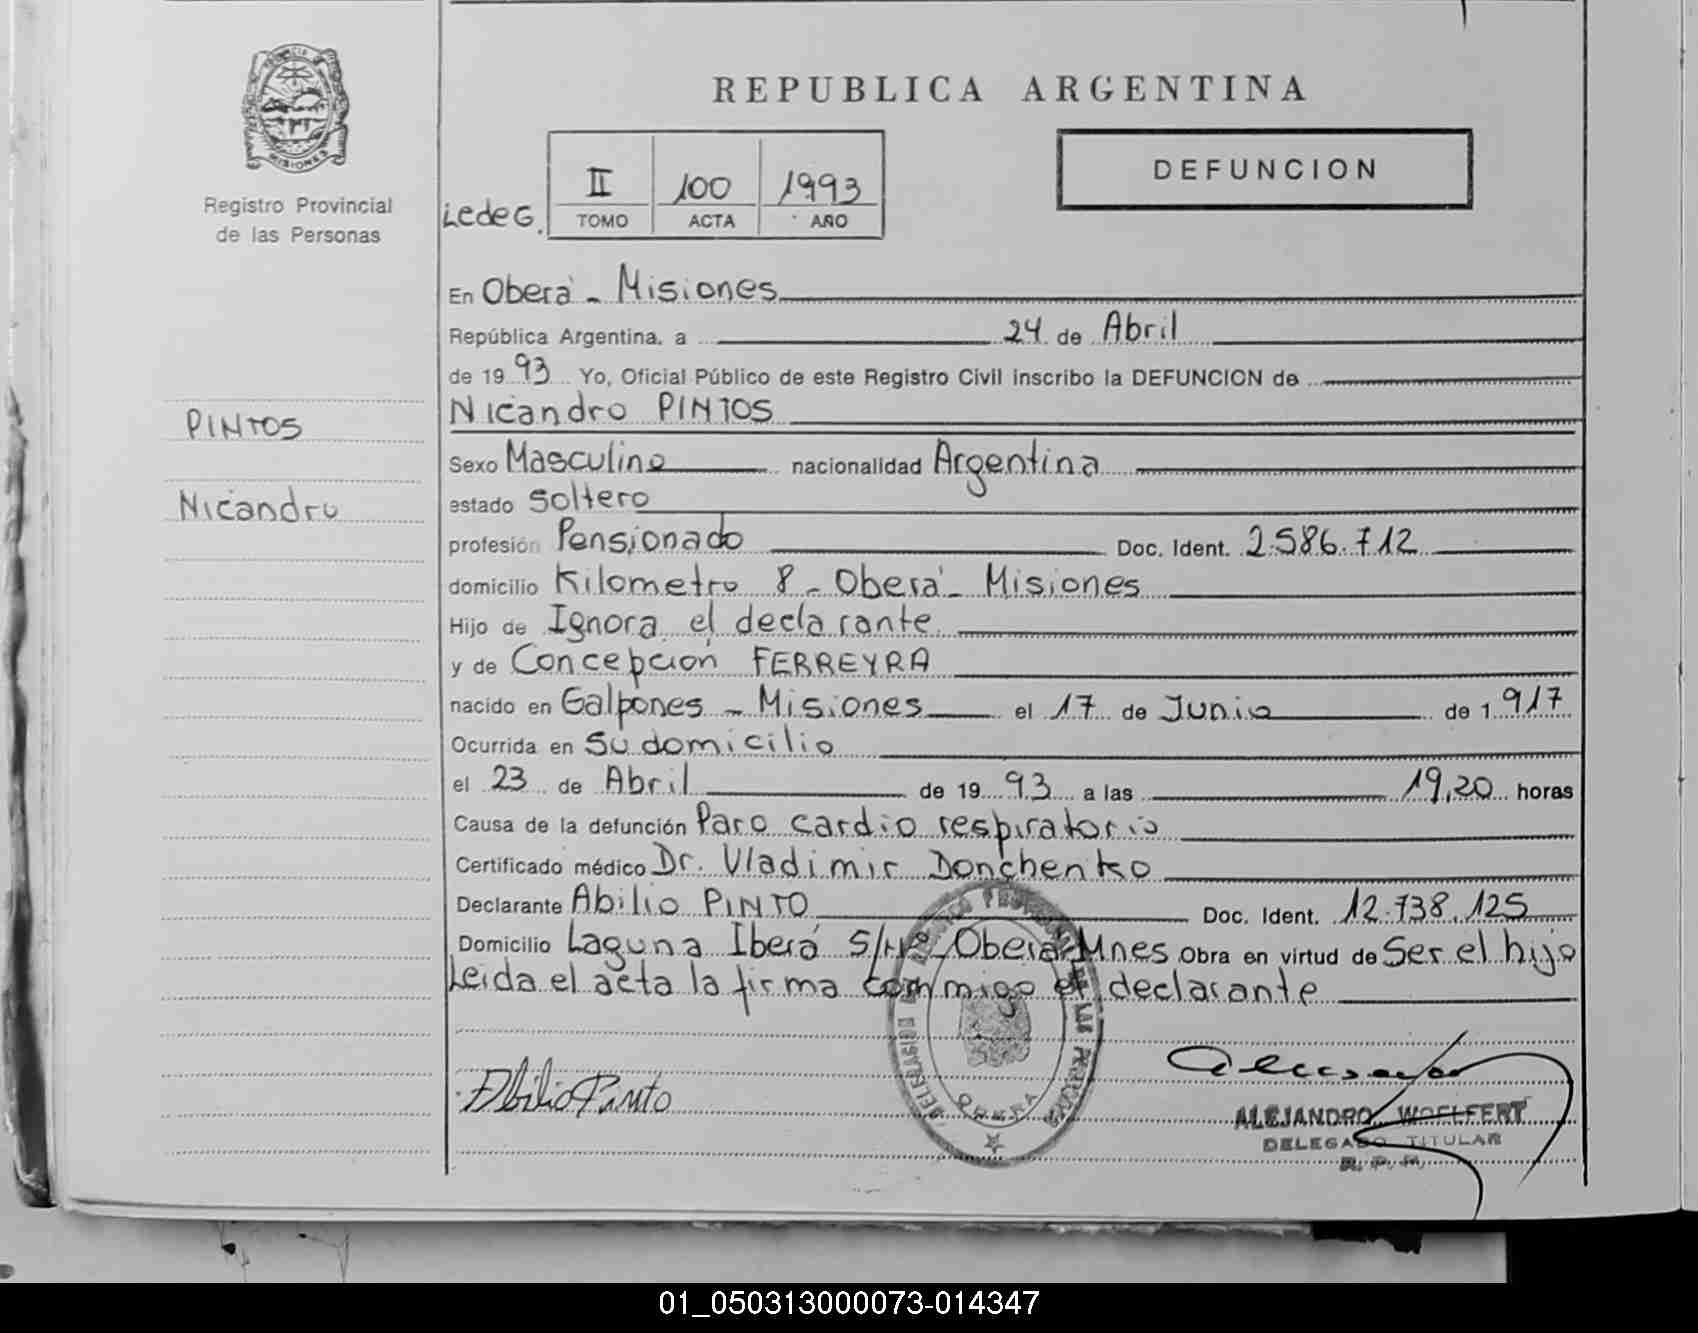 PROVINCIA DE
MISIONES
Registro Provincial
de las Personas
PINTOS
Nicandro
REPUBLICA ARGENTINA
LedeG.
II 100 1993
TOMO ACTA AÑO
DEFUNCION
En Oberá - Misiones
República Argentina, a 24 de Abril
de 1993 Yo, Oficial Público de este Registro Civil inscribo la DEFUNCION de
Nicandro PINTOS
Sexo Masculino nacionalidad Argentina
estado Soltero
profesión Pensionado Doc. Ident. 2.586.712
domicilio Kilometro 8 - Oberá - Misiones
Hijo de Ignora el declarante
y de Concepción FERREYRA
nacido en Galpones - Misiones el 17 de Junio de 1.917
Ocurrida en Su domicilio
el 23 de Abril de 1993 a las 19,20 horas
Causa de la defunción Paro cardio respiratorio
Certificado médico Dr. Vladimir Donchenko
Declarante Abilio PINTO Doc. Ident. 12.738.125
Domicilio Laguna Iberá S/Nº - Oberá - Mnes Obra en virtud de Ser el hijo
Leida el acta la firma conmigo el declarante
Abilio Pinto
OBERA
ALEJANDRO WOELFERT
DELEGADO TITULAR
R. P. P.
01_050313000073-014347